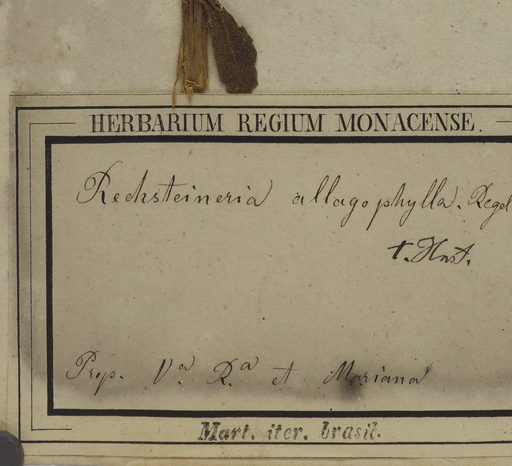 HERBARIUM REGIUM MONACENSE.
Rechsteineria allagophylla. Regel
t. Hnst.
Prop. Vª Rª et Mariana
Mart. iter. brasil.